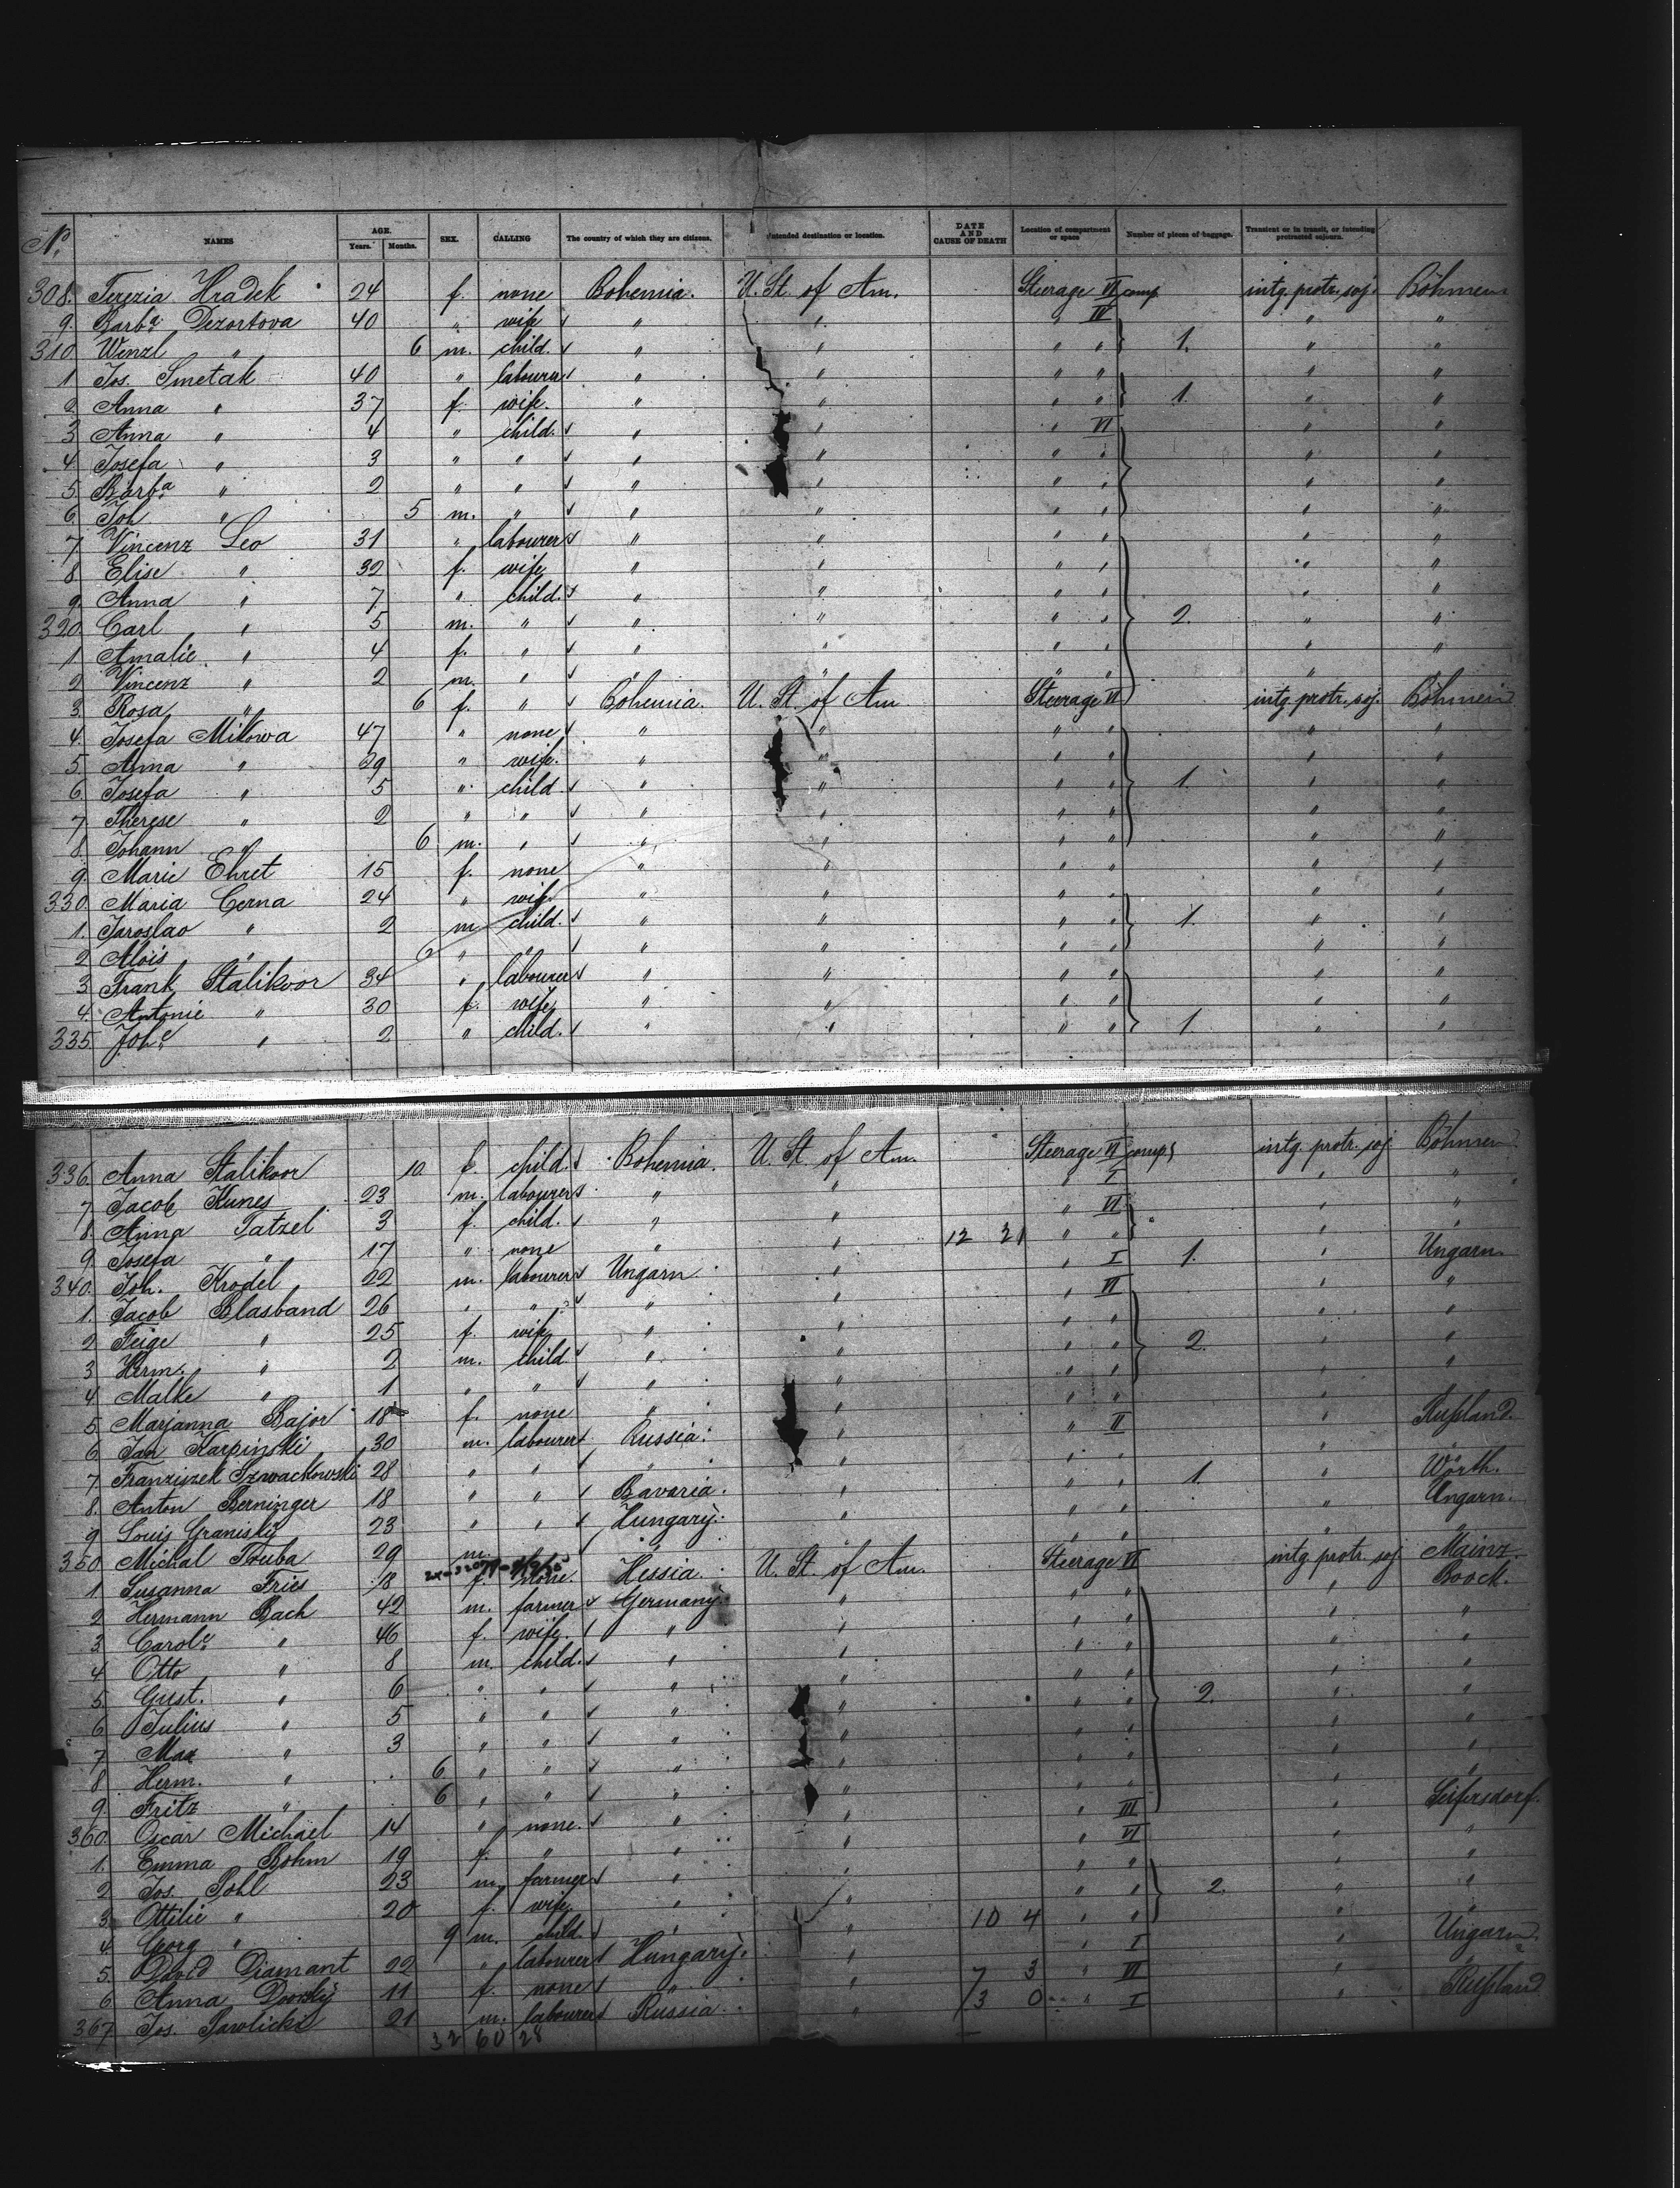 No. NAMES AGE. Years. Months. SEX. CALLING The country of which they are citizens. Intended destination or location. DATE AND CAUSE OF DEATH Location of compartment or space Number of pieces of baggage. Transient or in transit, or intending protracted sojourn.
308. Terezia Hradek 24 f. none Bohemia. U. St. of Am. Steerage VI comp. intg. protr. soj. Böhmen
9. Barba Dezortova 40 " wife " " " IV " "
310 Wenzl " 6 m. child. " " " " 1. " "
1 Jos. Smetak 40 " labourer " " " " " "
2 Anna " 37 f. wife. " " " " 1. " "
3 Anna " 4 " child. " " " VI " "
4. Josefa " 3 " " " " " " " "
5. Barba " 2 " " " " " " " "
6. Joh " 5 m. " " " " " " "
7 Vincenz Leo 31 " labourer " " " " " "
8 Elise " 32 f. wife " " " " " "
9. Anna " 7 " child. " " " " " "
320. Carl " 5 m. " " " " " 2. " "
1 Amalie " 4 f. " " " " " " "
2 Vincenz " 2 m. " " " " " " "
3. Rosa " 6 f. " Bohemia. U. St. of Am Steerage VI intg. protr. soj. Böhmen
4. Josefa Mikowa 47 " none " " " " " "
5. Anna " 29 " wife. " " " " " "
6. Josefa " 5 " child " " " " 1. " "
7 Therese " 2 " " " " " " " "
8. Johann " 6 m. " " " " " " "
9. Marie Ehret 15 f. none " " " " " "
330. Maria Cerna 24 " wife. " " " " " "
1. Jaroslav " 2 m child. " " " " 1. " "
2 Alois " 6 " " " " " " " "
3. Frank Stalikvor 34 " labourer " " " " " "
4. Antonie " 30 f. wife " " " " " "
335. Johe " 2 " child. " " " " 1. " "
336. Anna Stalikvor 10 f. child. Bohemia. U. St. of Am. Steerage VI comp. intg. protr. soj Böhmen
7 Jacob Kunes 23 m. labourer " " " I " "
8. Anna Tatzel 3 f. child. " " " VI " "
9. Josefa " 17 " none " " 12 21 " " " "
340. Joh. Krodel 22 m. labourer Ungarn. " " I 1. " Ungarn.
1. Jacob Blasband 26 " " " " " VI " "
2 Feige " 25 f. wife " " " " " "
3 Herm. " 2 m. child " " " " 2. " "
4 Malke " 1 " " " " " " " "
5 Marjanna Bajor 18 f. none " " " " " "
6 Jan Karpinski 30 m. labourer Russia. " " II " Rußland.
7 Franziszek Szwackowski 28 " " " " " " "
8. Anton Berninger 18 " " Bavaria. " " " 1. " Wörth.
9 Louis Granisky 23 " " Hungary. " " " " Ungarn.
350 Michal Truba 29 m. " " " " " " "
1 Susanna Fries 18 f. none. Hessia. U. St. of Am. Steerage VI intg. protr. soj Mainz.
2 Hermann Bach 42 m. farmer Germany " " " " Boock.
3. Carole " 46 f. wife. " " " " " "
4 Otto " 8 m. child. " " " " " "
5. Gust. " 6 " " " " " " " "
6 Julius " 5 " " " " " " 2. " "
7 Max " 3 " " " " " " " "
8 Herm. " 6 " " " " " " " "
9. Fritz " 6 " " " " " " " "
360. Oscar Michael 14 " none. " " " III " Seifersdorf.
1. Emma Böhm 19 f. " " " " VI " "
2 Jos. Pohl 23 m. farmer " " " " " "
3. Ottilie " 20 f. wife. " " " " 2. " "
4. Georg " 9 m. child. " " 10 4 " " " "
5. David Diamant 22 " labourer Hungary. " " I " Ungarn
6 Anna Dvorsky 11 f. none " " 7 3 " VI " "
367 Jos. Pawlicki 21 m. labourer Russia. " 3 0 " I " Rußland
32 60 28